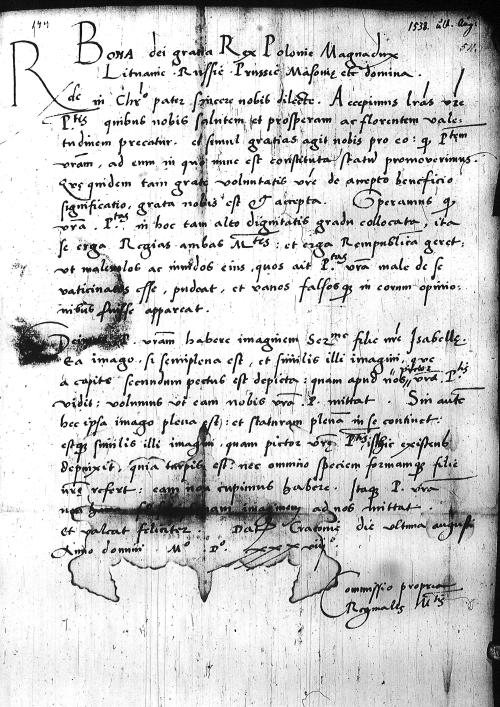 1538. ult. Aug.
BONA dei gratia Regina Polonie Magnadux
Lituanie. Russie. Prussie Masouie etc domina.
Rde in Chro pater syncere nobis dilecte. Accepimus lras vre
Ptis quibus nobis salutem et prosperam ac florentem vale-
tudinem precatur. et simul gratias agit nobis pro eo: q Ptem
vram, ad eum in quo nunc est constituta statum promoverimus.
Que quidem tam grate voluntatis vre de accepto beneficio
significatio, grata nobis est et accepta. Speramus q
vra. Ptas in hoc tam alto dignitatis gradu collocata, ita
se erga Regias ambas Mtes: et erga Rempublica geret:
ut malevolos ac invidos eius, quos ait Ptas vra male de se
vaticinatos esse, pudeat, et vanos falsosq in eorum opinio-
nibus fuisse appareat.
P. vram habere imaginem Serme filie nre Isabelle.
Ea imago. si semiplena est, et similis illi imagini, que
a capite secundum pectus est depicta: quam apud nos pictor vra. Ptis
vidit: volumus ut eam nobis vra P. mittat. Sin aute
hec ipsa imago plena est: et staturam plena in se continet:
estq similis illi imagini, quam pictor vre Ptis isthic existens
depinxit, quia turpis est. nec omnino speciem formamq filie
nre refert: eam non cupimus habere. Itaq P. vra
imaginem ad nos mittat.
et valeat feliciter. Dat Cracovie die ultima augusti
Anno domini Mo. Do. xxxviij
Commissio propria
Reginalis Mtis